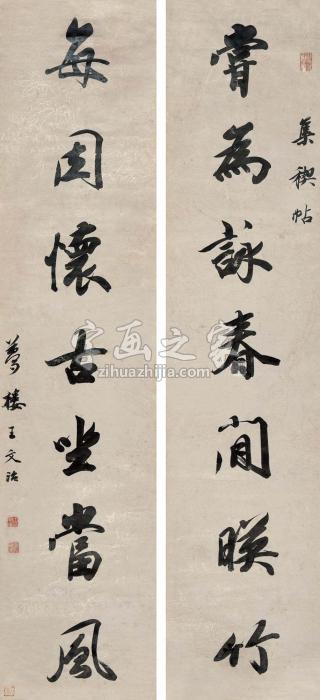 集禊帖
甞為詠春間暎竹
每因懷古坐當風
夢樓王文治
字画之家
zihuazhijia.com